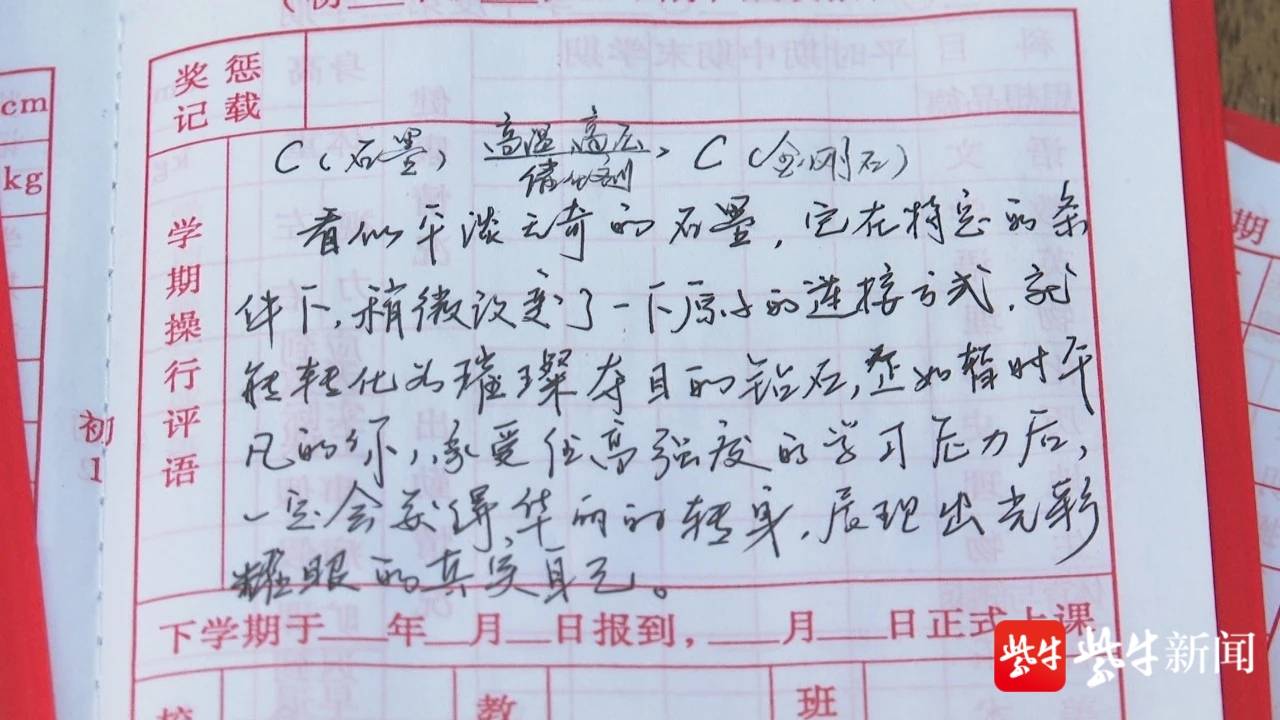 奖惩
记载
cm
kg
C(石墨) 高温 高压 C(金刚石)
催化剂
学期操行评语
看似平淡无奇的石墨,它在特定的条
件下,稍微改变了一下原子的连接方式,就
能转化为璀璨夺目的钻石,正如暂时平
凡的你,承受住高强度的学习压力后,
一定会获得华丽的转身,展现出光彩
耀眼的真实自己。
初
1
期
下学期于 年 月 日报到, 月 日正式上课
校
教
班
紫牛 紫牛新闻